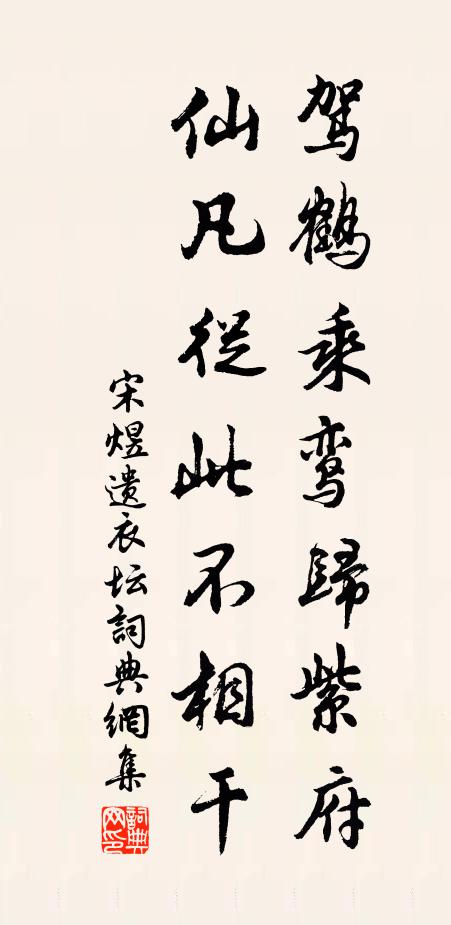 驾鹤乘鸾歸紫府
仙凡從此不相干
宋煜遺衣坛詞典網集
詞典網印